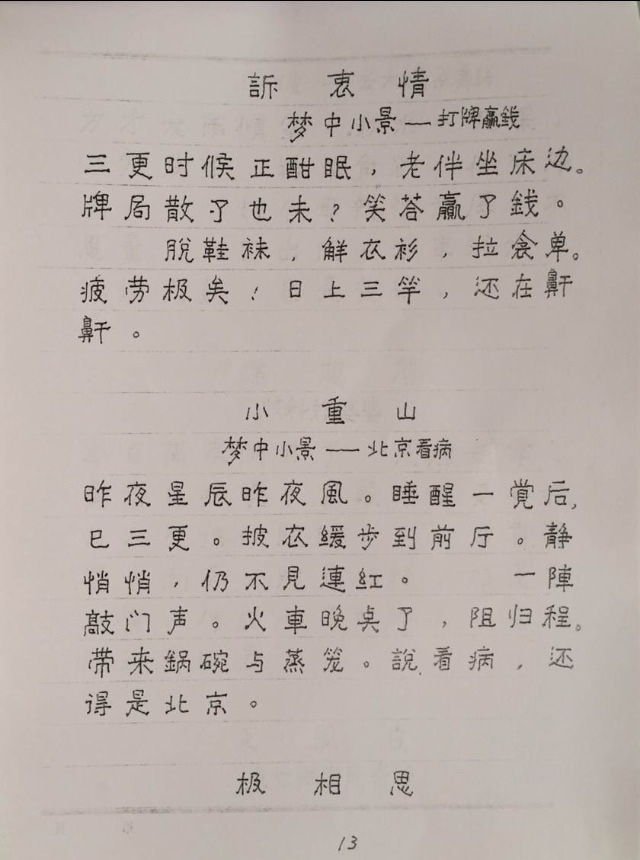 訴衷情
梦中小景——打牌贏銭
三更时候正酣眠，老伴坐床边。
牌局散了也未？笑荅贏了錢。
脫鞋袜，觧衣衫，拉衾单。
疲劳极矣！日上三竿，还在鼾
鼾。
小重山
梦中小景——北京看病
昨夜星辰昨夜風。睡醒一覺后,
已三更。披衣缓步到前厅。静
悄悄，仍不見連紅。 一陣
敲门声。火車晚桌了，阻归程。
带来鍋碗与蒸笼。說看病，还
得是北京。
极相思
13